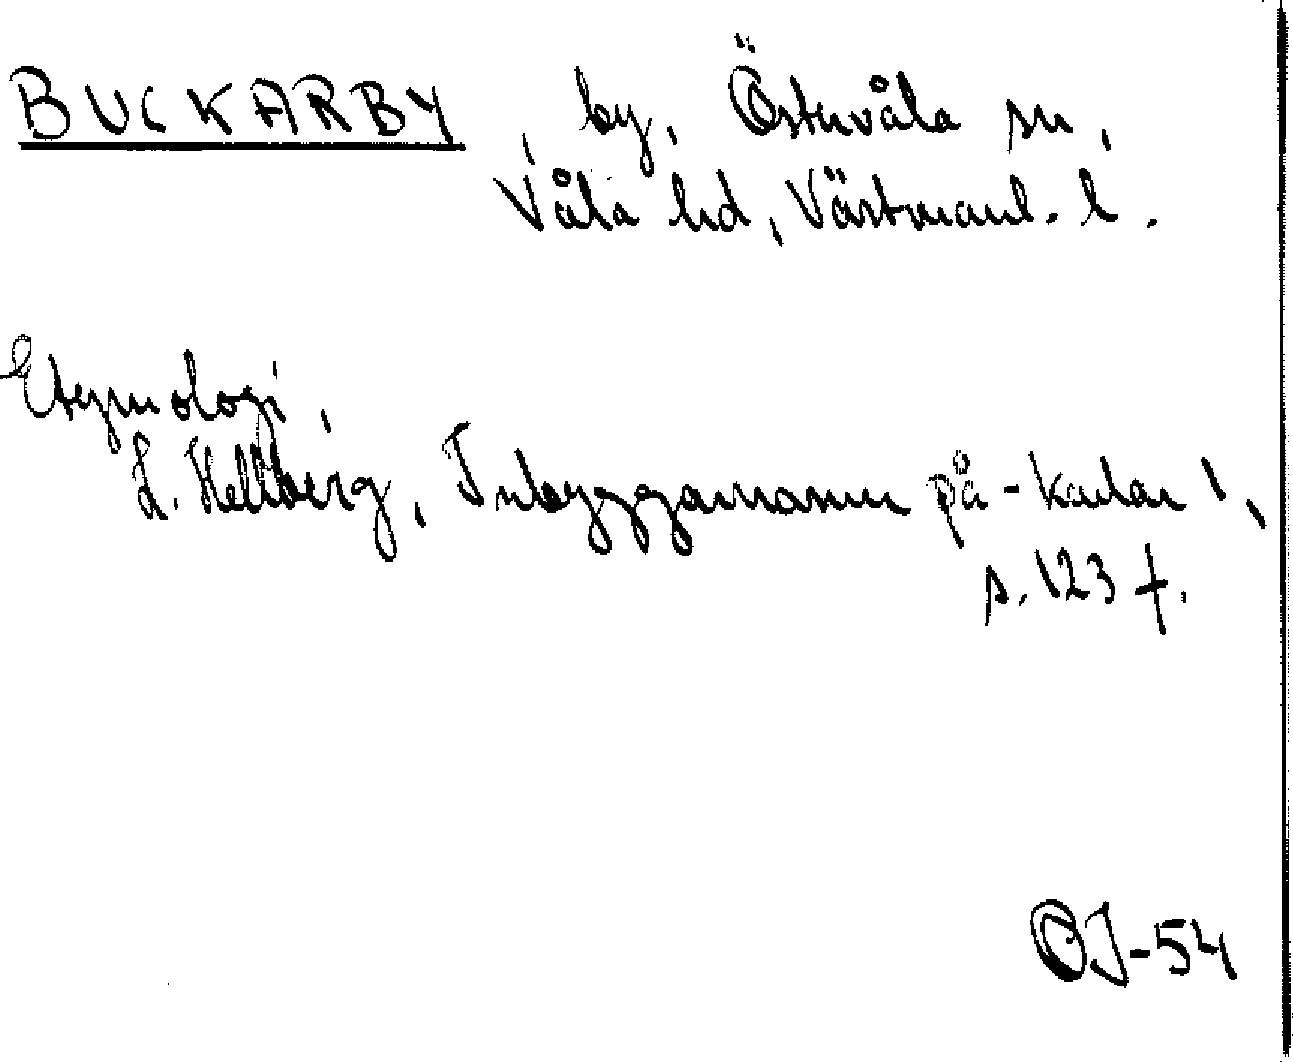 BUCKARBY, by, Östervåla sn,
Våla hd, Västmanl. l.
Etymologi,
L. Hellberg, Inbyggarnamn på -karlar 1,
s. 123 f.
OJ-54